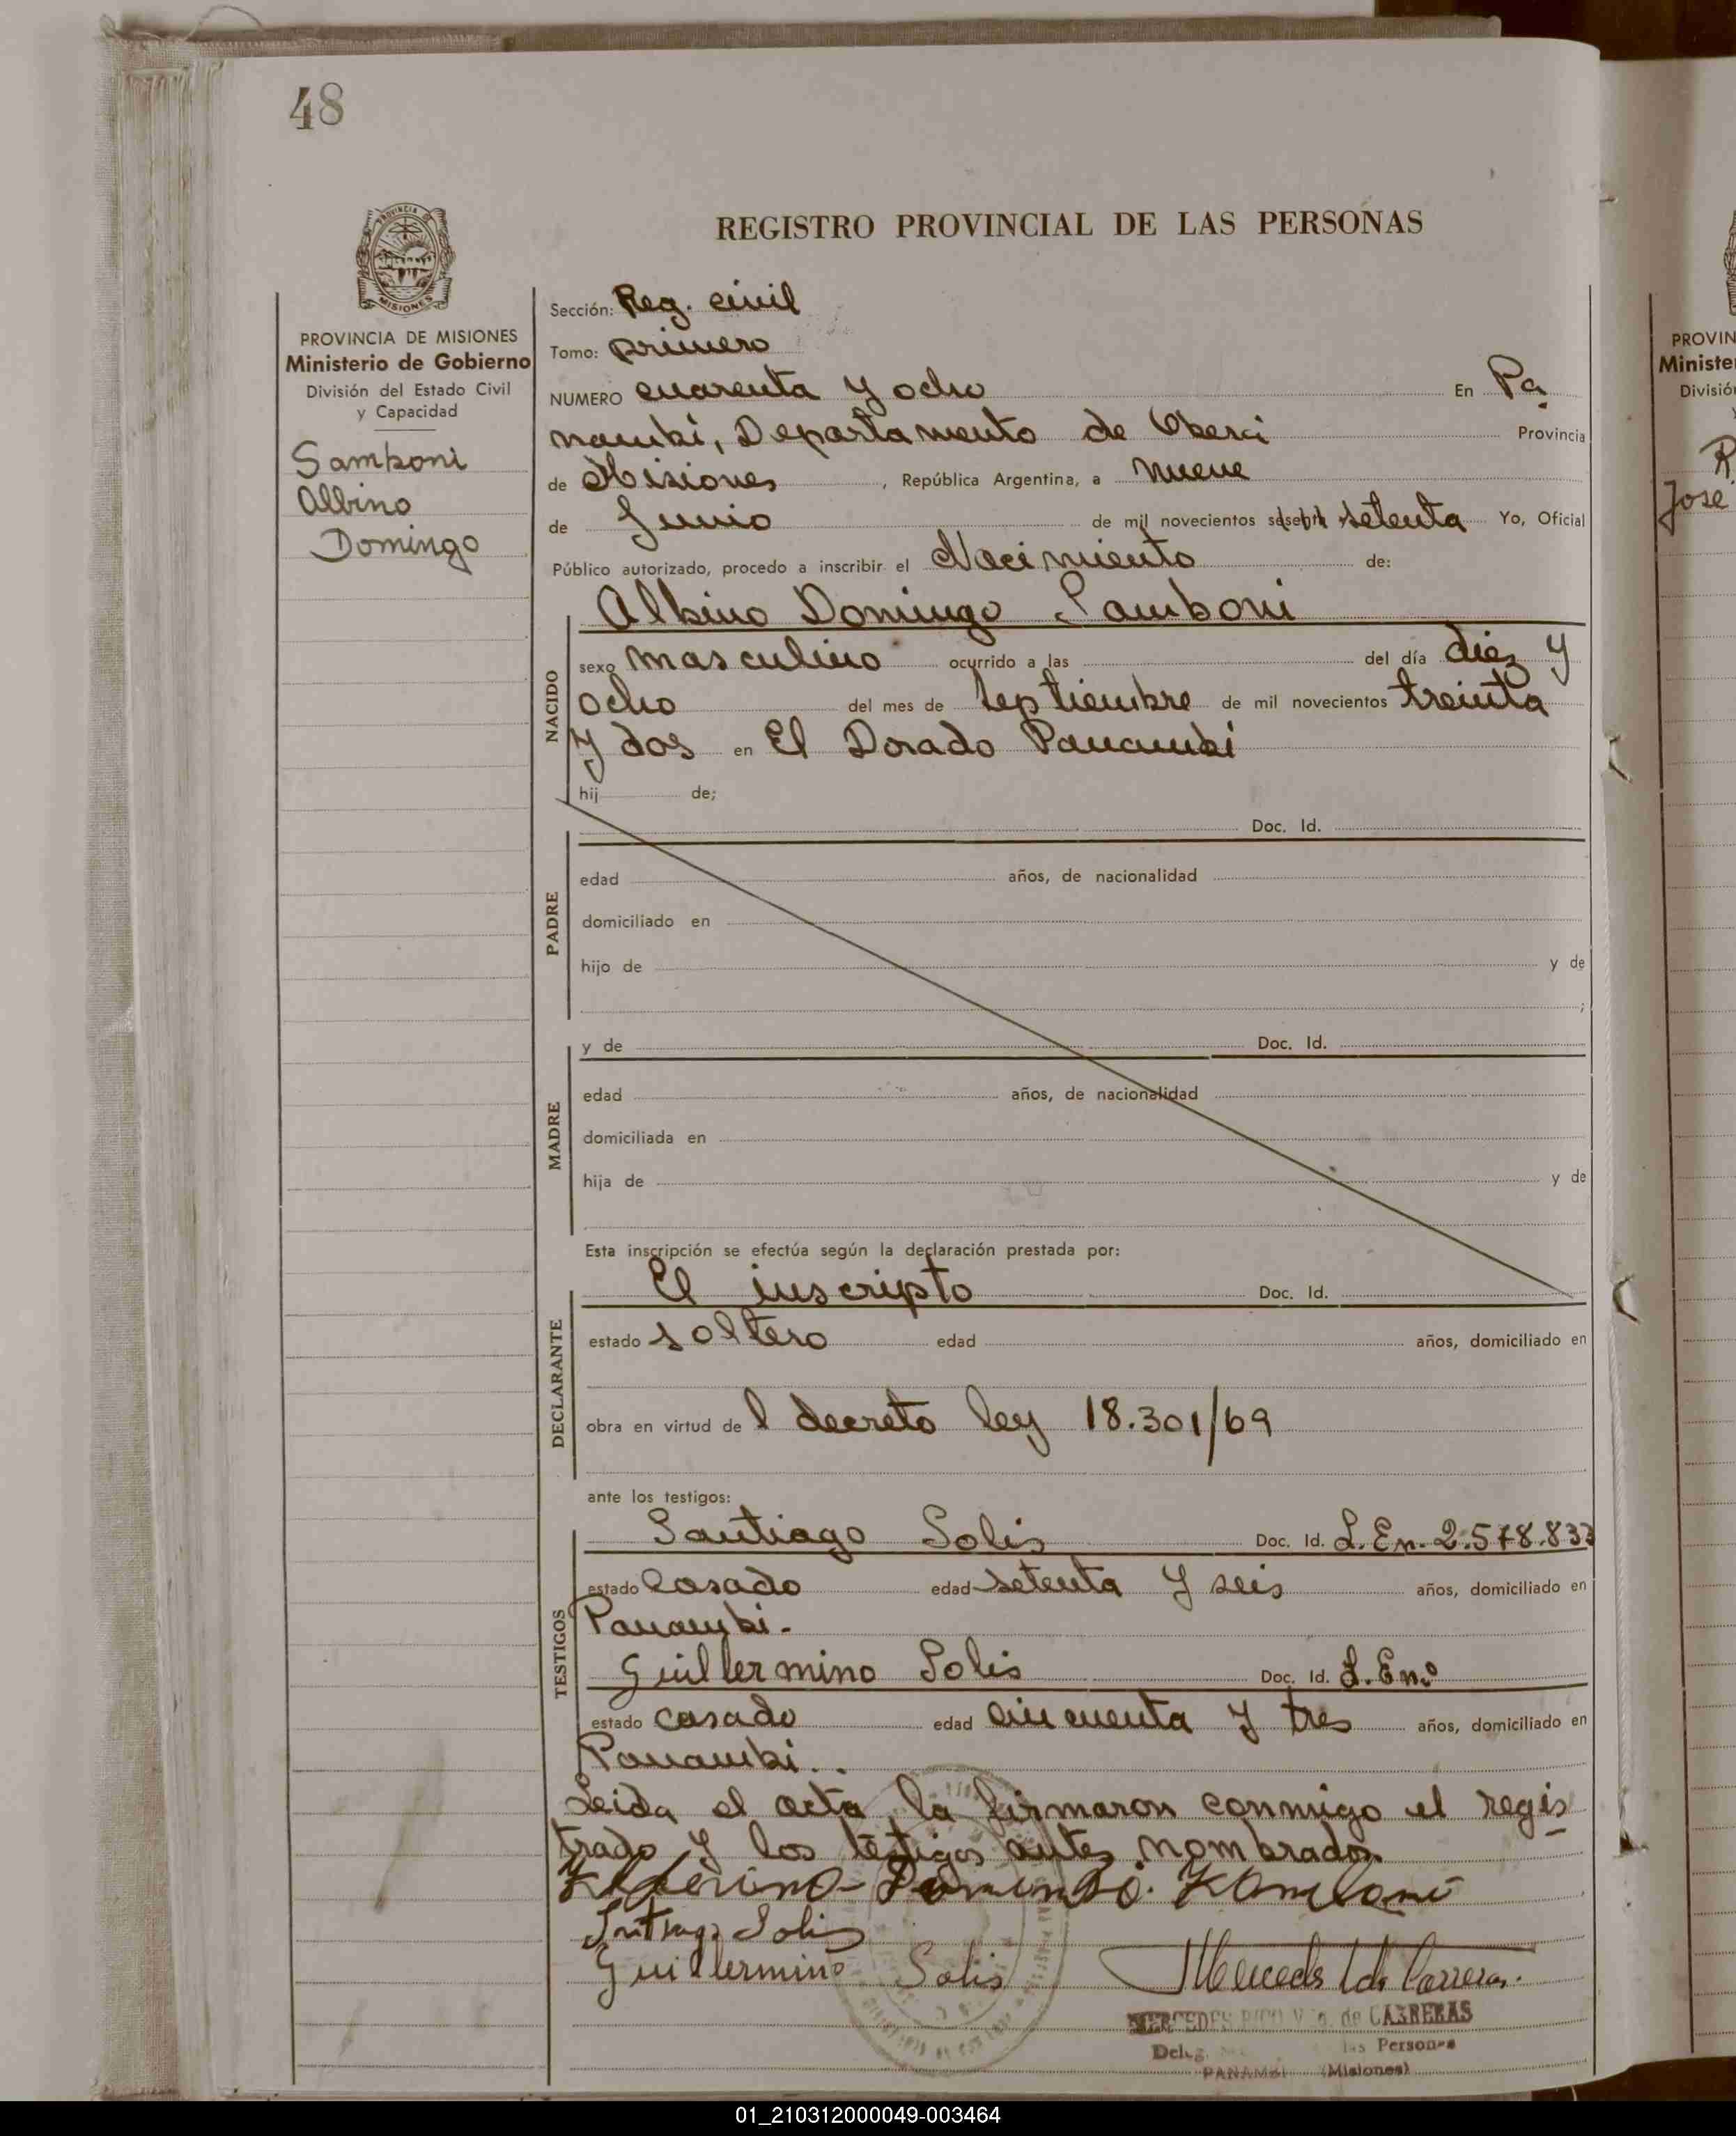 48
REGISTRO PROVINCIAL DE LAS PERSONAS
MISIONES
PROVINCIA DE MISIONES
Ministerio de Gobierno
División del Estado Civil
y Capacidad
Samboni
Albino
Domingo
Sección: Reg. civil
Tomo: primero
NUMERO cuarenta y ocho En Pa
nambí, Departamento de Oberá Provincia
de Misiones, República Argentina, a nueve
de Junio de mil novecientos setenta Yo, Oficial
Público autorizado, procedo a inscribir el Nacimiento de:
Albino Domingo Samboni
NACIDO
sexo masculino ocurrido a las del día diez y
ocho del mes de septiembre de mil novecientos treinta
y dos en El Dorado Panambí
hij de;
PADRE
Doc. Id.
edad años, de nacionalidad
domiciliado en
hijo de y de
;
MADRE
y de Doc. Id.
edad años, de nacionalidad
domiciliada en
hija de y de
Esta inscripción se efectúa según la declaración prestada por:
DECLARANTE
El inscripto Doc. Id.
estado soltero edad años, domiciliado en
obra en virtud de l decreto ley 18.301/69
ante los testigos:
TESTIGOS
Santiago Solis Doc. Id. L. En. 2.578.833
estado Casado edad setenta y seis años, domiciliado en
Panambí.
Guillermino Solis Doc. Id. L. En.º
estado casado edad cincuenta y tres años, domiciliado en
Panambí..
Leida el acta la firmaron conmigo el regis
trado y los testigos antes nombrados.
Solis
Guillermino Solis
MERCEDES RICO V de CARRERAS
Deleg. las Personas
PANAMBI (Misiones)
PROVIN
Ministe
Divisió
Jose
01_210312000049-003464